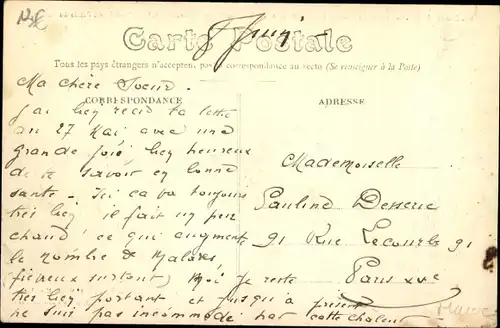 8 Juin
Carte Postale
Tous les pays étrangers n'acceptent pas la correspondance au recto (Se renseigner à la Poste)
CORRESPONDANCE
ADRESSE
Ma chère Soeur.
J'ai bien recu ta lettre
du 27 Mai avec une
grande joie bien heureux
de te savoir en bonne
santé - Ici ca va toujours
très bien il fait un peu
chaud ce qui augmente
le nombre de Malades
(fiévreux surtout) Moi je reste
très bien portant et jusqu'à présent
ne suis pas incommodé par cette chaleur
Mademoiselle
Pauline
91 Rue Lecourbe 91
Paris XVe